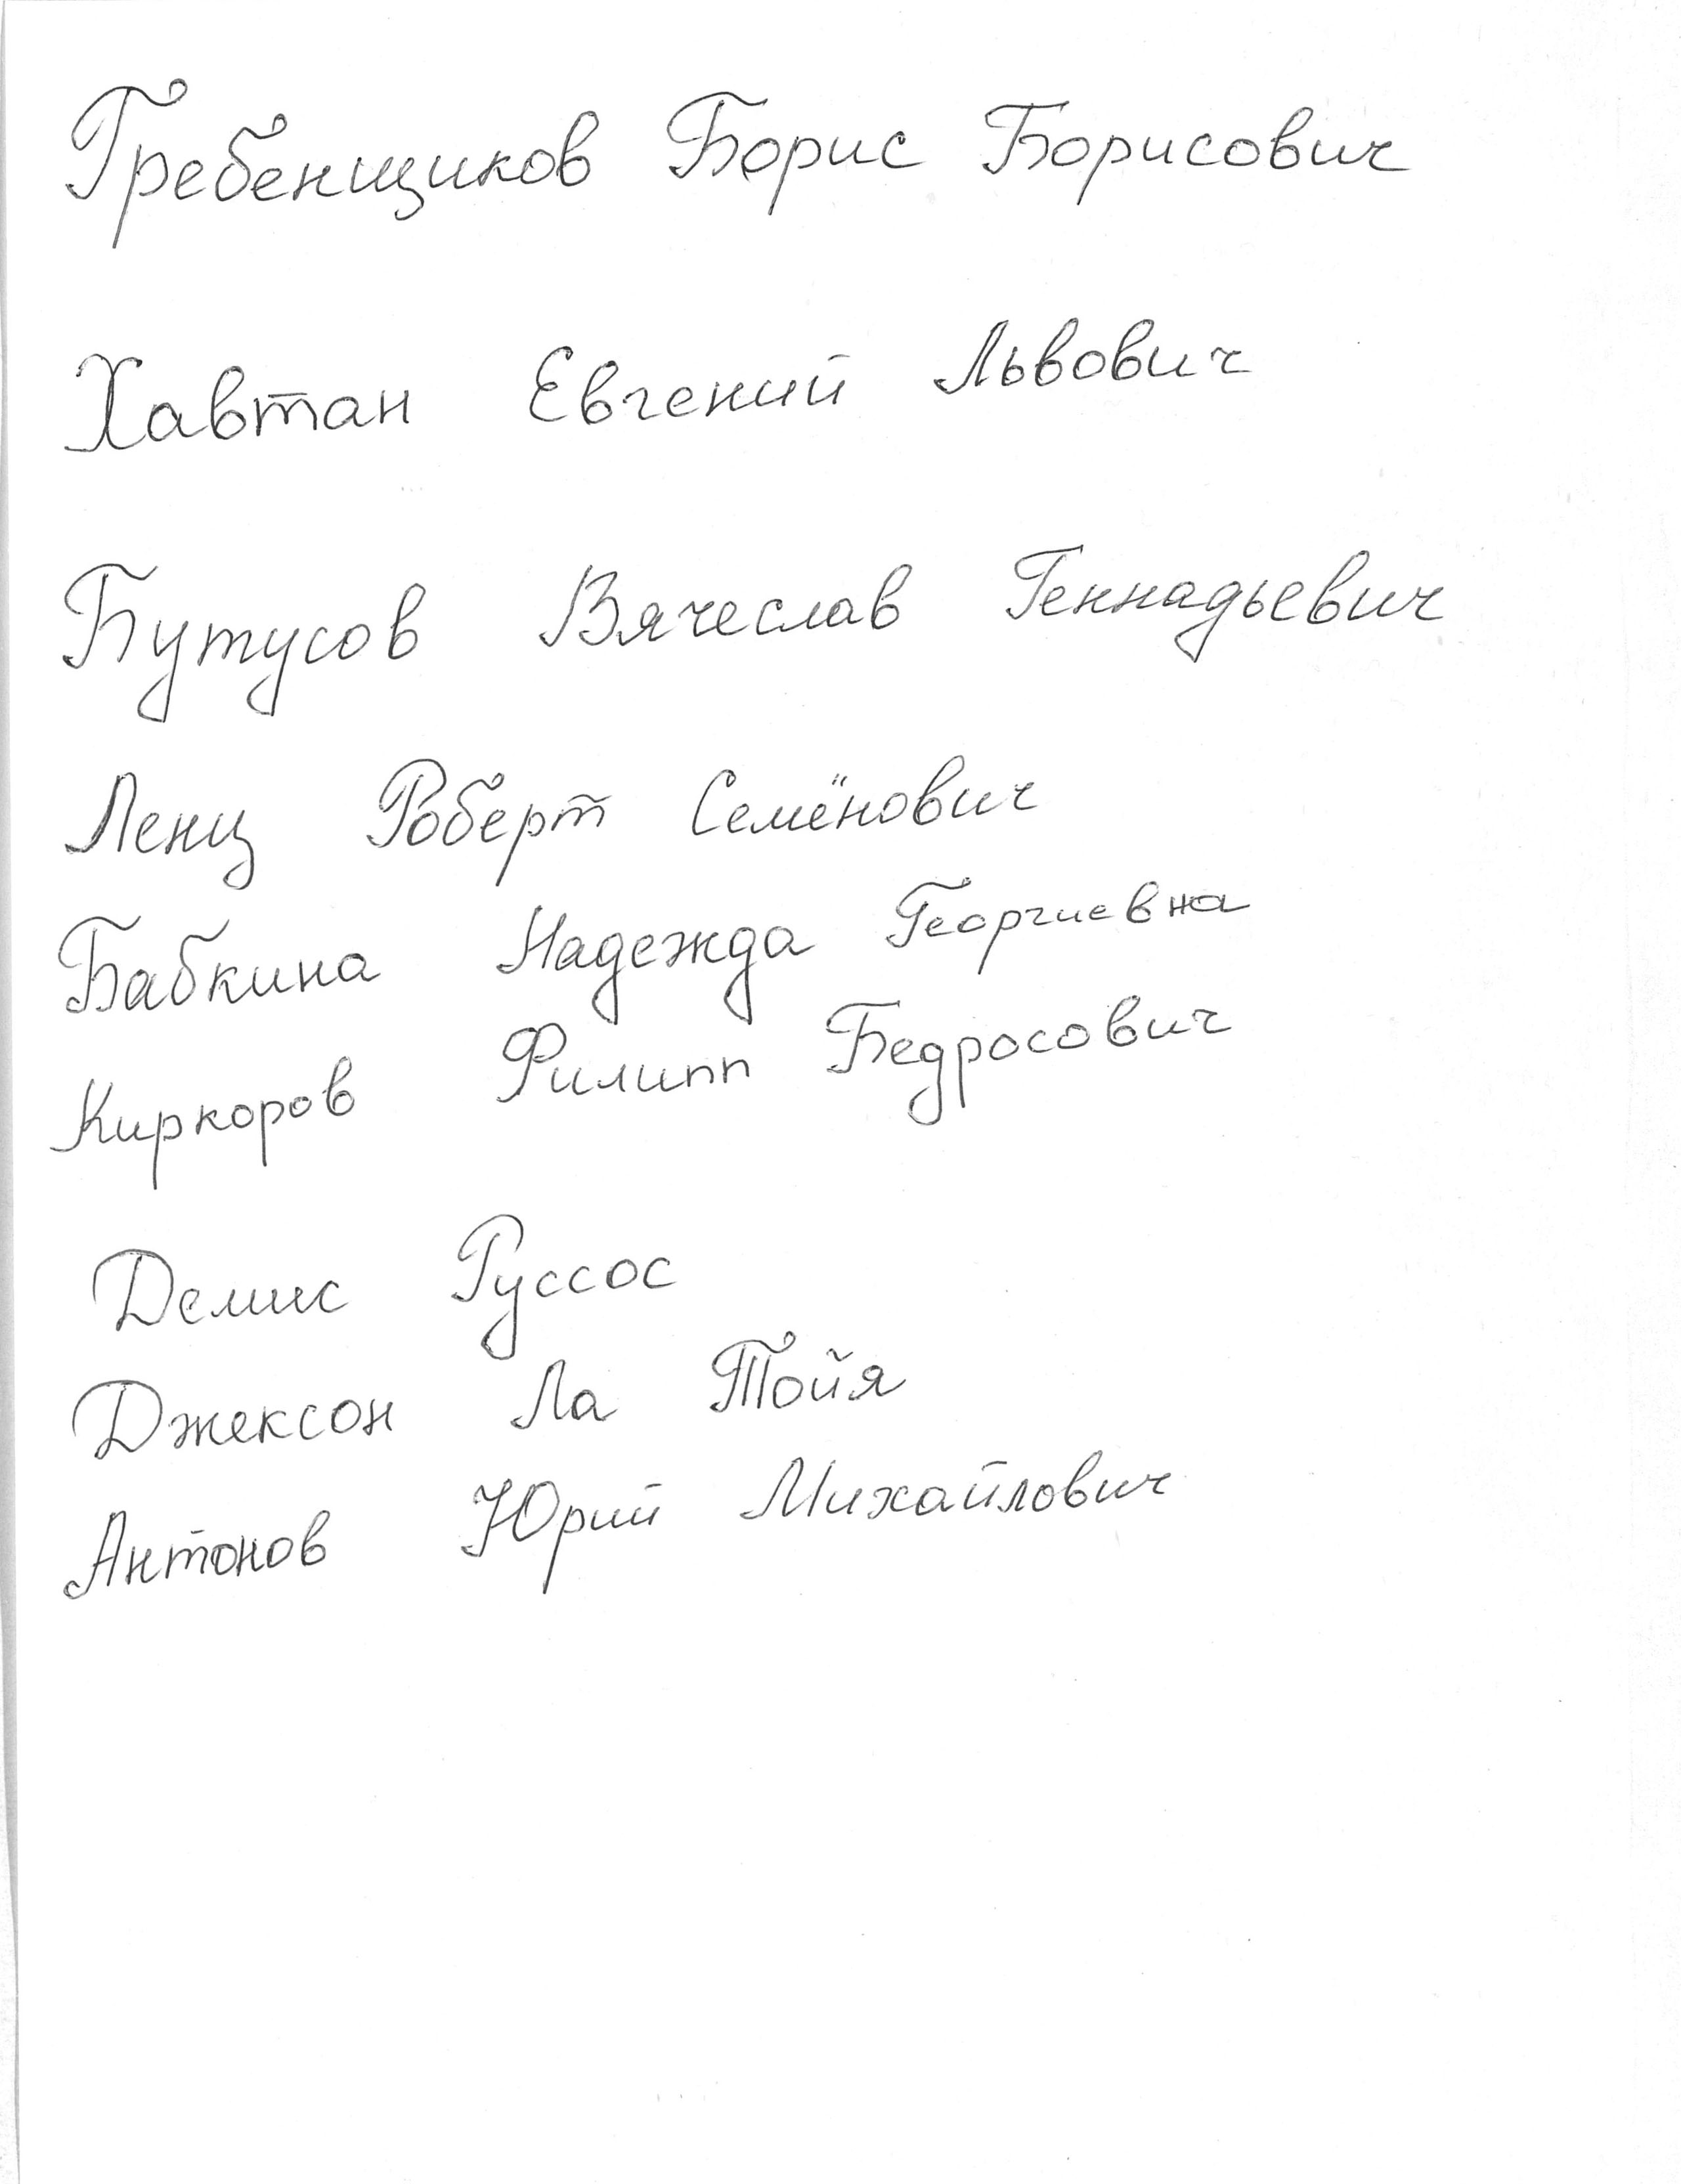 Гребенщиков Борис Борисович
Хавтан Евгений Львович
Бутусов Вячеслав Геннадьевич
Ленц Роберт Семёнович
Бабкина Надежда Георгиевна
Киркоров Филипп Бедросович
Демис Руссос
Джексон Ла Тойя
Антонов Юрий Михайлович